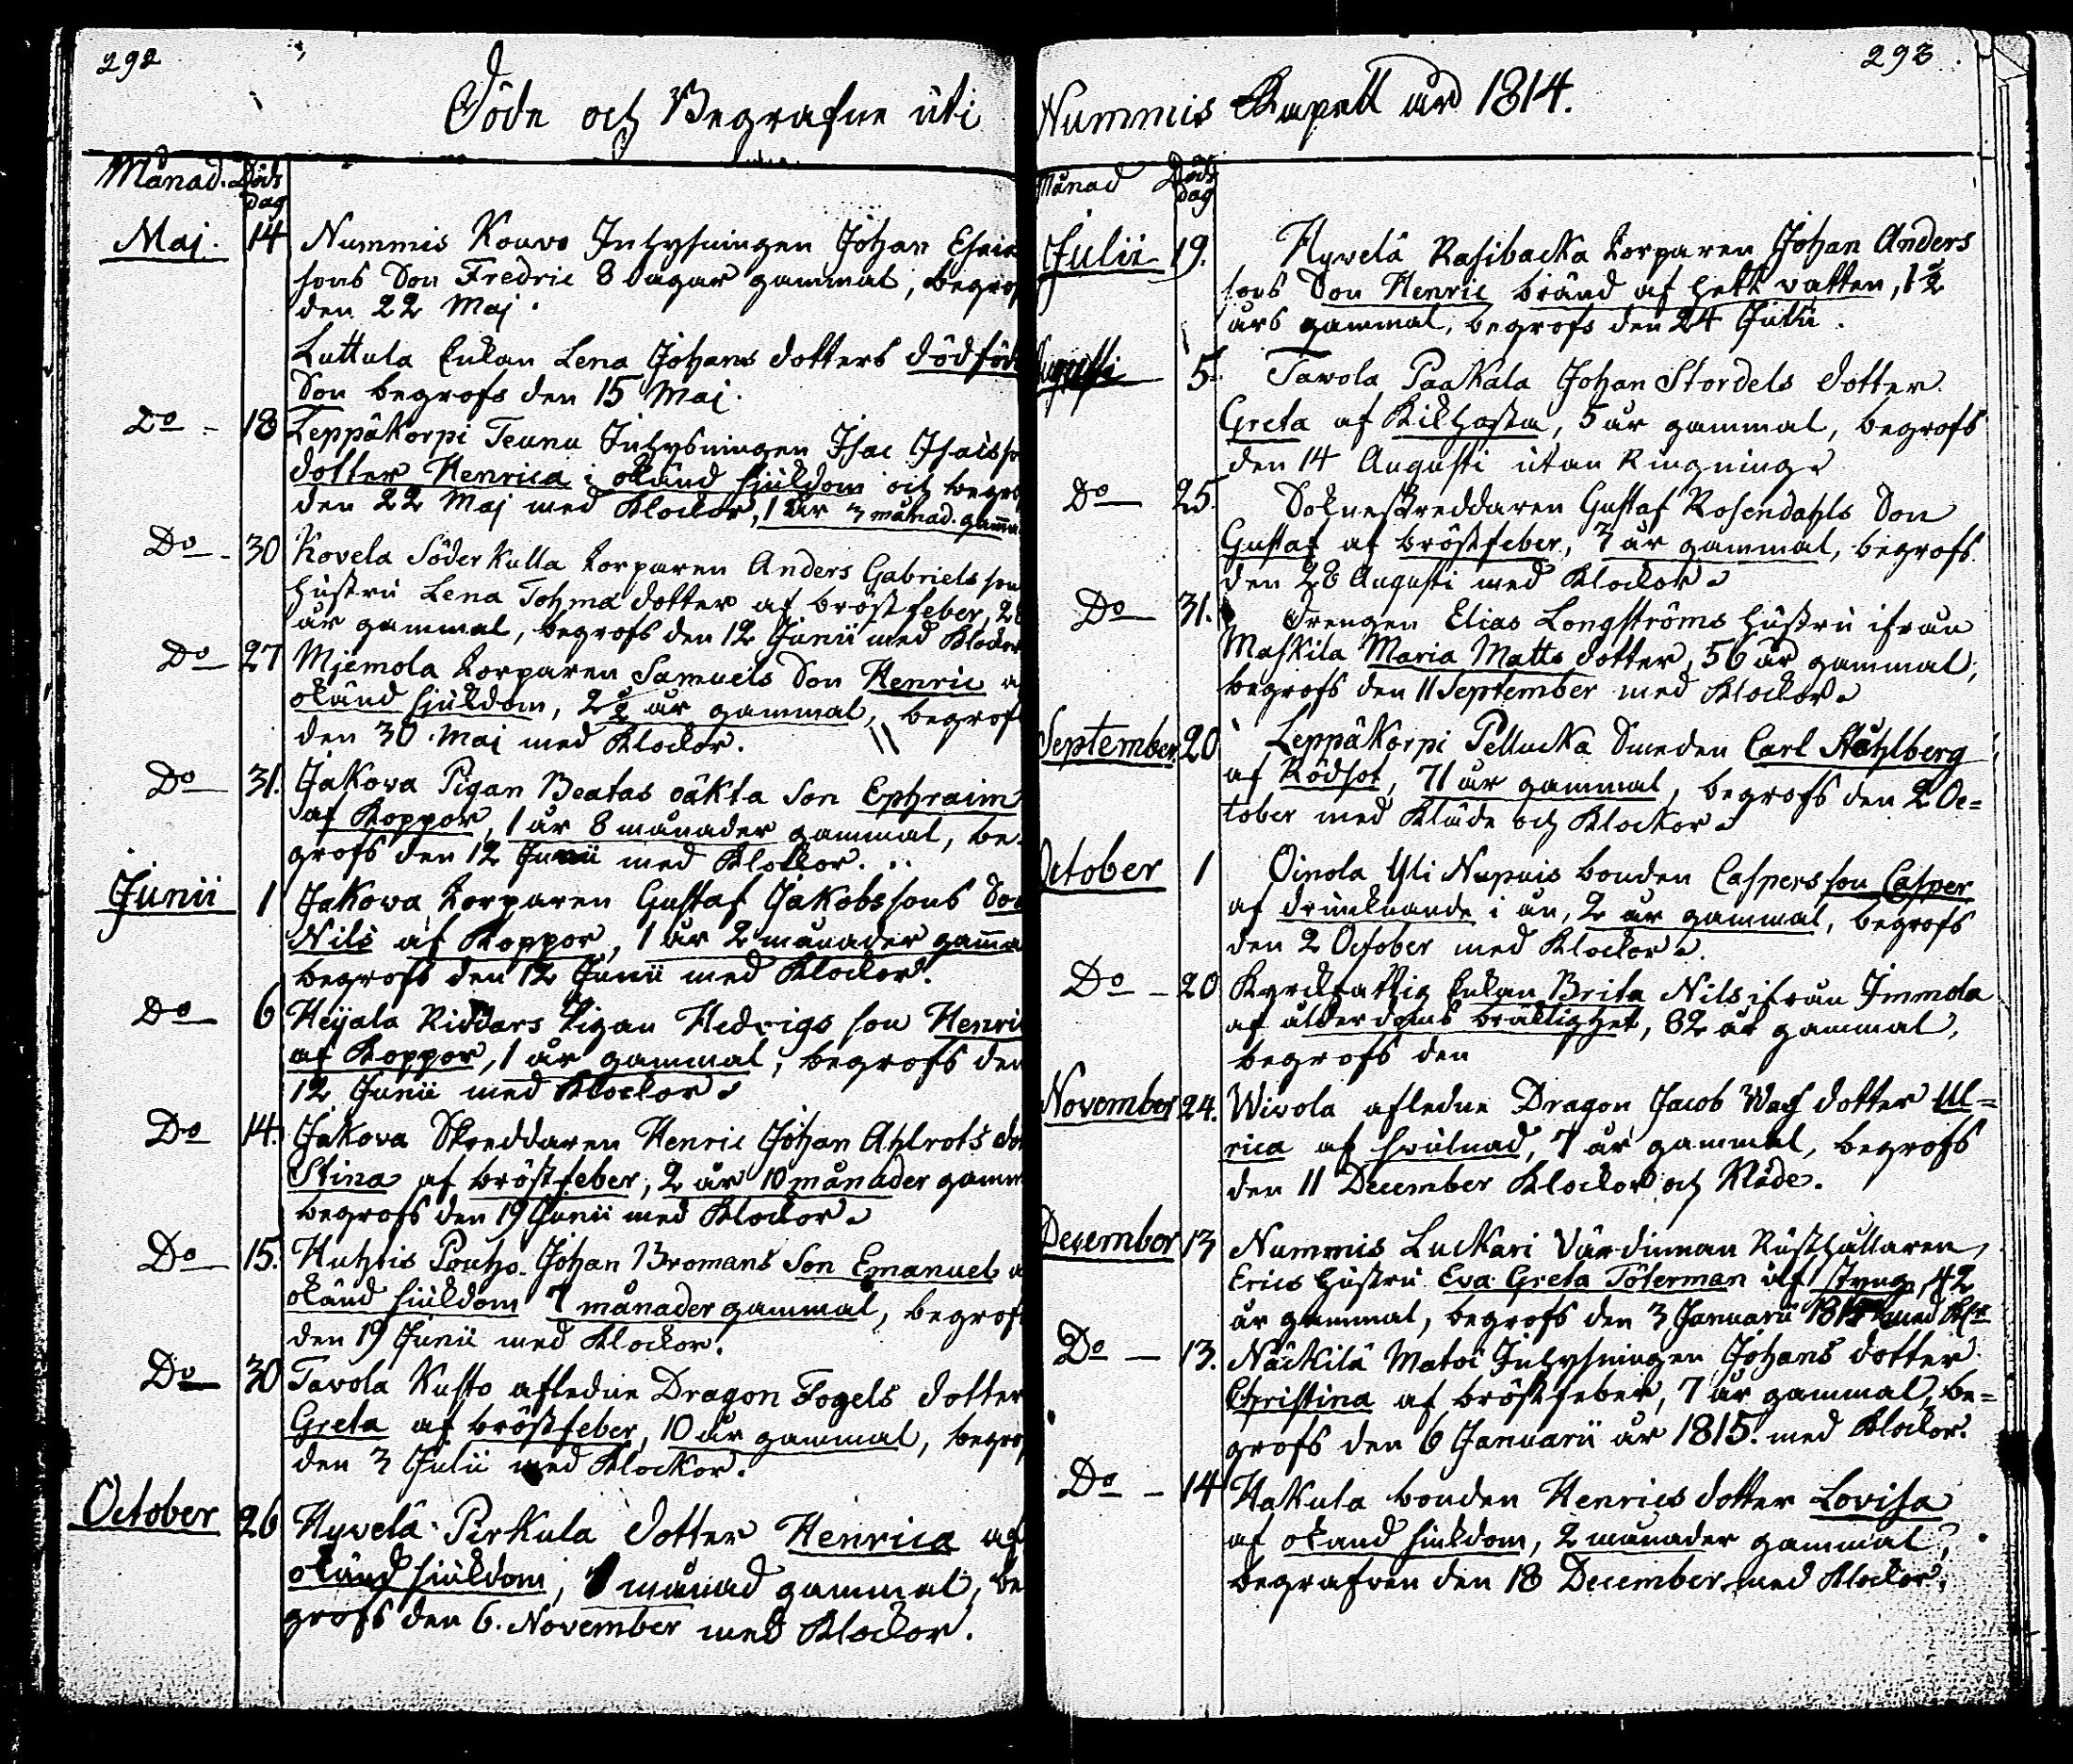 292
Döde och Begrafne uti
Månad. Döds dag
Maj. 14 Nummis Kouvo Inhysningen Johan
sons Son Fredric 8 dagar gammal, begrof
den 22 Maj.
Luttula Enkan Lena Johans dotters dödföd
Son begrofs den 15 Maj.
Do 18 Leppäkorpi Teunu Inhysningen Isac Isacsso
dotter Henrica i okänd siukdom och begro
den 22 Maj med Klockor, 1 år 3 månad. gamma
Do 30 Kovela Söderkulla torparen Anders Gabriels son
hustru Lena Tohma dotter af bröstfeber, 28
år gammal, begrofs den 12 Junii med Klockor
Do 27 Mjemola torparen Samuels Son Henric a
okänd siukdom, 2 1/2 år gammal, begrof
den 30 Maj med Klockor.
Do 31. Jakova Pigan Beatas oäkta Son Ephraim
af Koppor, 1 år 8 månader gammal, be-
grofs den 12 Junii med Klockor.
Junii 1 Jakova torparen Gustaf Jakobssons Son
Nils af Koppor, 1 år 2 månader gamma
begrofs den 12 Junii med Klockor.
Do 6 Heijala Riddars Pigan Hedvigs son Henri
af Koppor, 1 år gammal, begrofs den
12 Junii med Klockor
Do 14. Jakova Skreddaren Henric Johan Ahlrots dot
Stina af bröstfeber, 2 år 10 månader gamm
begrofs den 19 Junii med Klockor
Do 15. Huhtis Pouho Johan Bromans Son Emanuel a
okänd siukdom 7 månader gammal, begrof
den 19 Junii med Klockor.
Do 30 Tavola Kusto afledne Dragon Fogels dotter
Greta af bröstfeber, 10 år gammal, begrof
den 3 Julii med Klockor.
October 26 Hyvelä Perkula dotter Henrica af
okänd siukdom, 1 månad gammal, be
grofs den 6. November med Klockor.
293
Nummis Kapell år 1814.
Månad Döds dag
Julii 19. Hyvelä Rasibacka torparen Johan Anders
sons Son Henric bränd af hett vatten, 1 1/2
års gammal, begrofs den 24 Julii.
Augusti 5. Tavola Paakala Johan Stordels dotter
Greta af Kikhosta, 5 år gammal, begrofs
den 14 Augusti utan Ringning
Do 25. Sokneskreddaren Gustaf Rosendahls Son
Gustaf af bröstfeber, 7 år gammal, begrofs
den 28 Augusti med Klockor
Do 31. Drengen Elias Longströms hustru ifrån
Maskila Maria Matts dotter, 56 år gammal,
begrofs den 11 September med Klockor
September 20 Leppäkorpi Pellucka Smeden Carl Ståhlberg
af Rödsot, 71 år gammal, begrofs den 2 Oc=
tober med Kläde och Klockor
October 1 Oinola Yli Nupuis bonden Caspers son Casper
af drunknande i ån, 2 år gammal, begrofs
den 2 October med Klockor.
Do 20 Kyrckfattig Enkan Brita Nils ifrån Immola
af ålderdoms bräklighet, 82 år gammal,
begrofs den
November 24. Wivola afledne Dragon Jacob Wass dotter Ul=
rica af svulnad, 7 år gammal, begrofs
den 11 December Klockor och Kläde.
December 13 Nummis Luckari Värdinnan Rusthållaren
Erics hustru Eva Greta Töterman af styng, 42
år gammal, begrofs den 3 Januarii 1815 med Klr
Do 13. Näckilä Matoi Inhysningen Johans dotter
Christina af bröstfeber, 7 år gammal, be=
grofs den 6 Januarii år 1815. med Klockor.
Do 14 Hakula bonden Henrics dotter Lovisa
af okand siukdom, 2 månader gammal,
begrafven den 18 December med Klockor.